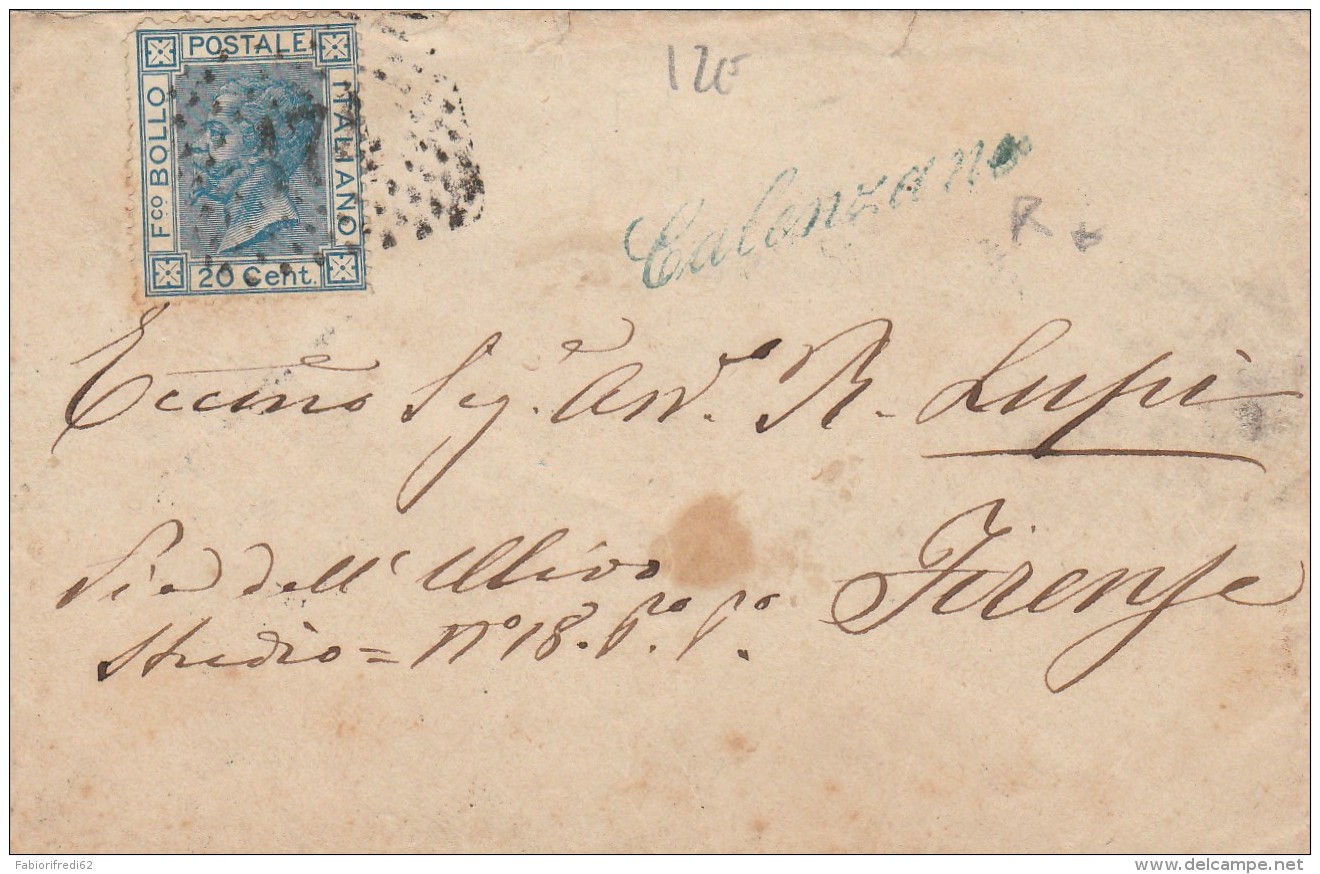 POSTALE
Fco BOLLO
ITALIANO
20 Cent.
120
Calenzano
R
Eccmo Sige Avv. R. Lupi
Via dell' Ulivo
Firenze
Studio = No 18. po. po.
Fabiorifredi62
delcampe.net